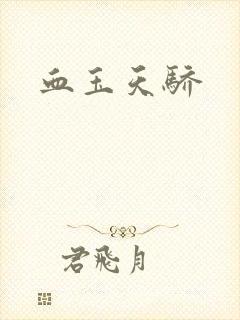 血玉天骄
君飛月